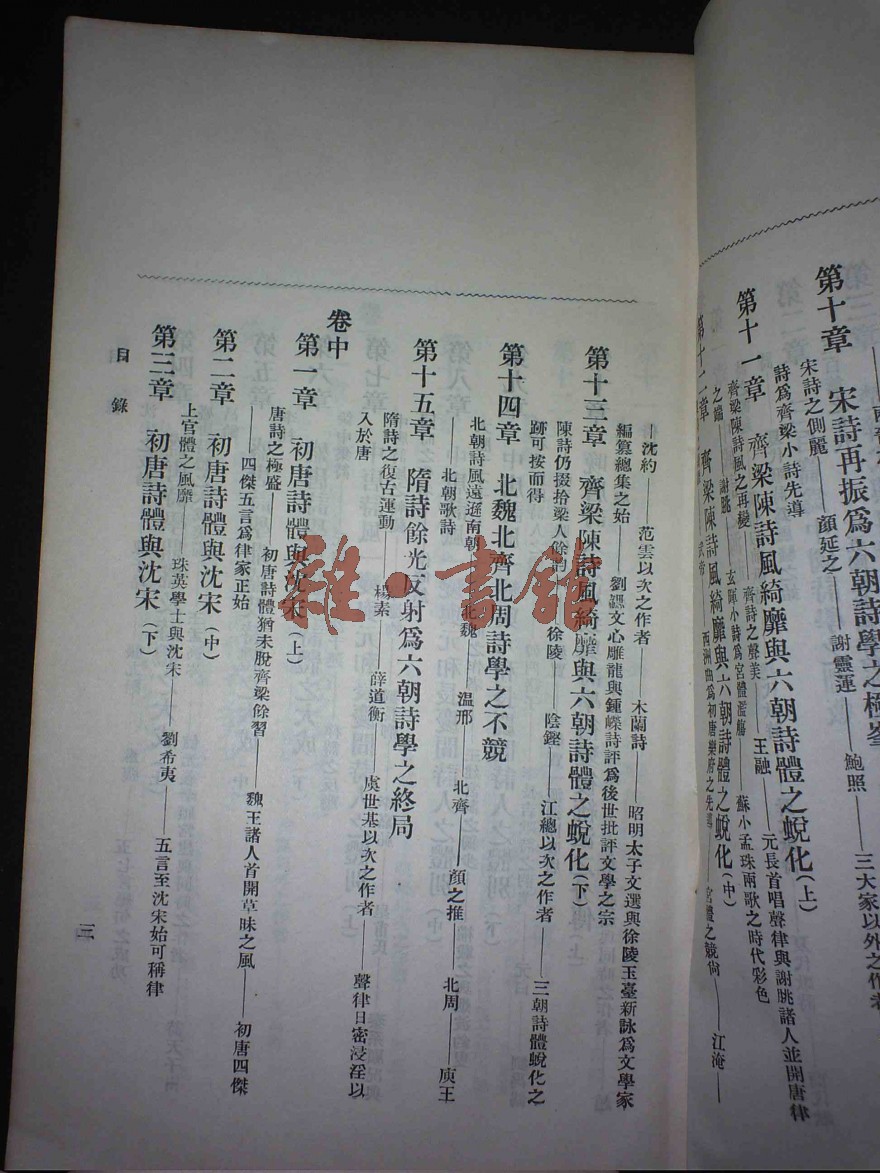 第十章　宋詩再振爲六朝詩學之極峯
宋詩之側麗——顏延之——謝靈運——鮑照——三大家以外之作者
詩爲齊梁小詩先導
第十一章　齊梁陳詩風綺靡與六朝詩體之蛻化（上）
齊梁陳詩風之再變——齊詩之聲美——王融——元長首唱聲律與謝朓諸人並開唐律
之端——謝朓——玄暉小詩爲宮體濫觴——蘇小孟珠兩歌之時代彩色
第十二章　齊梁陳詩風綺靡與六朝詩體之蛻化（中）
武帝——西洲曲爲初唐樂府之先導——宮體之競尚——江淹——
——沈約——范雲以次之作者——木蘭詩——昭明太子文選與徐陵玉臺新詠爲文學家
編纂總集之始——劉勰文心雕龍與鍾嶸詩評爲後世批評文學之宗
第十三章　齊梁陳詩風綺靡與六朝詩體之蛻化（下）
陳詩仍掇拾梁人餘——徐陵——陰鏗——江總以次之作者——三朝詩體蛻化之
跡可按而得
第十四章　北魏北齊北周詩學之不競
北朝詩風遠遜南朝——北魏——溫邢——北齊——顏之推——北周——庾王
——北朝歌詩
第十五章　隋詩餘光反射爲六朝詩學之終局
隋詩之復古運動——楊素——薛道衡——虞世基以次之作者——聲律日密浸淫以
入於唐
卷中
第一章　初唐詩體與沈宋（上）
唐詩之極盛——初唐詩體猶未脫齊梁餘習——魏王諸人首開草昧之風——初唐四傑
——四傑五言爲律家正始
第二章　初唐詩體與沈宋（中）
上官體之風靡——珠英學士與沈宋——劉希夷——五言至沈宋始可稱律
第三章　初唐詩體與沈宋（下）
目錄
三
雜·書館